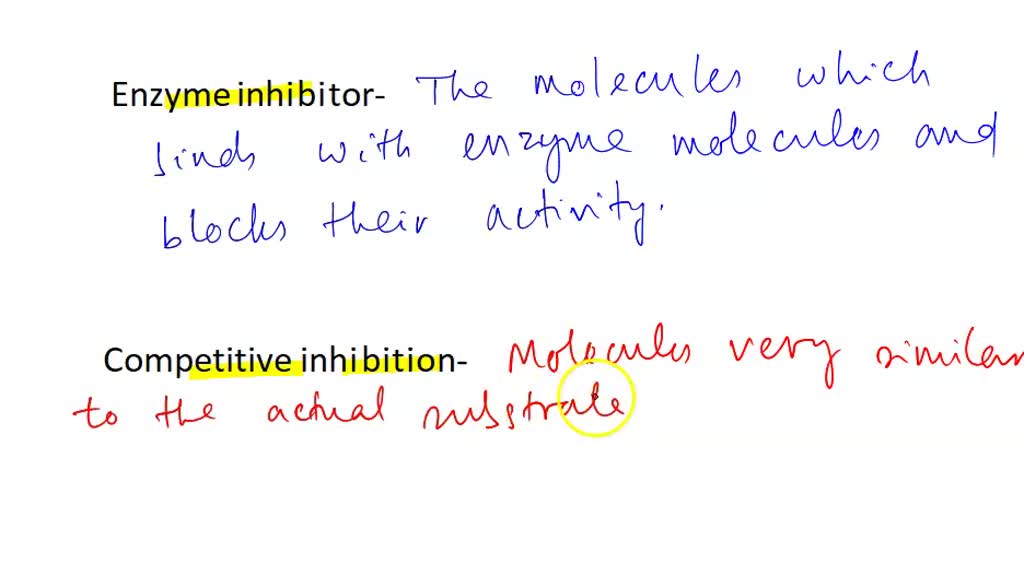 Enzyme inhibitor- The molecules which
binds with enzyme molecules and
blocks their activity.
Competitive inhibition- Molecules very similar
to the actual substrate